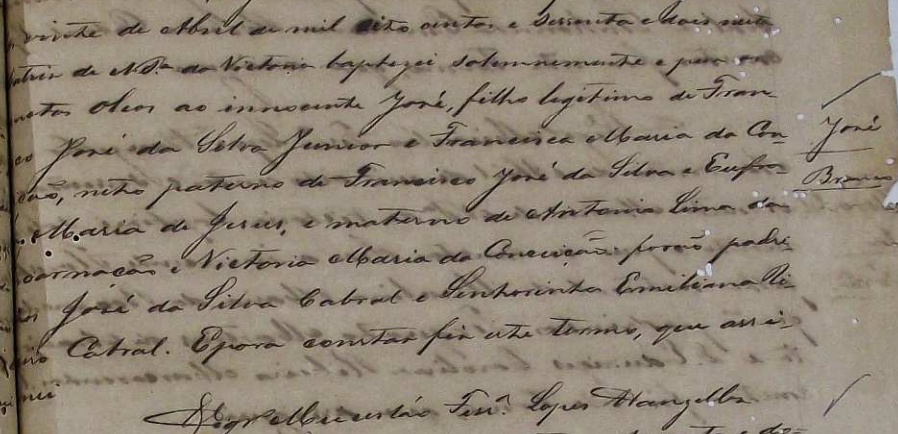 vinte de Abril de mil oito centos e sessenta e dois nesta
Matriz de N. Sª da Victoria baptezei solemnemente e puz os
Santos Oleos ao innocente José, filho legitimo de Fran-
co José da Silva Junior e Francisca Maria da Con-
José
ção, neto paterno de Francisco José da Silva e Eufra-
Branco
Maria de Jesus, e materno de Antonio Lima da
carnação e Victoria Maria da Conceição: forão padri-
José da Silva Cabral e Senhorinha Emiliana Ri-
Cabral. E para constar fiz este termo, que assi-
nei
Vigr.º Lopes